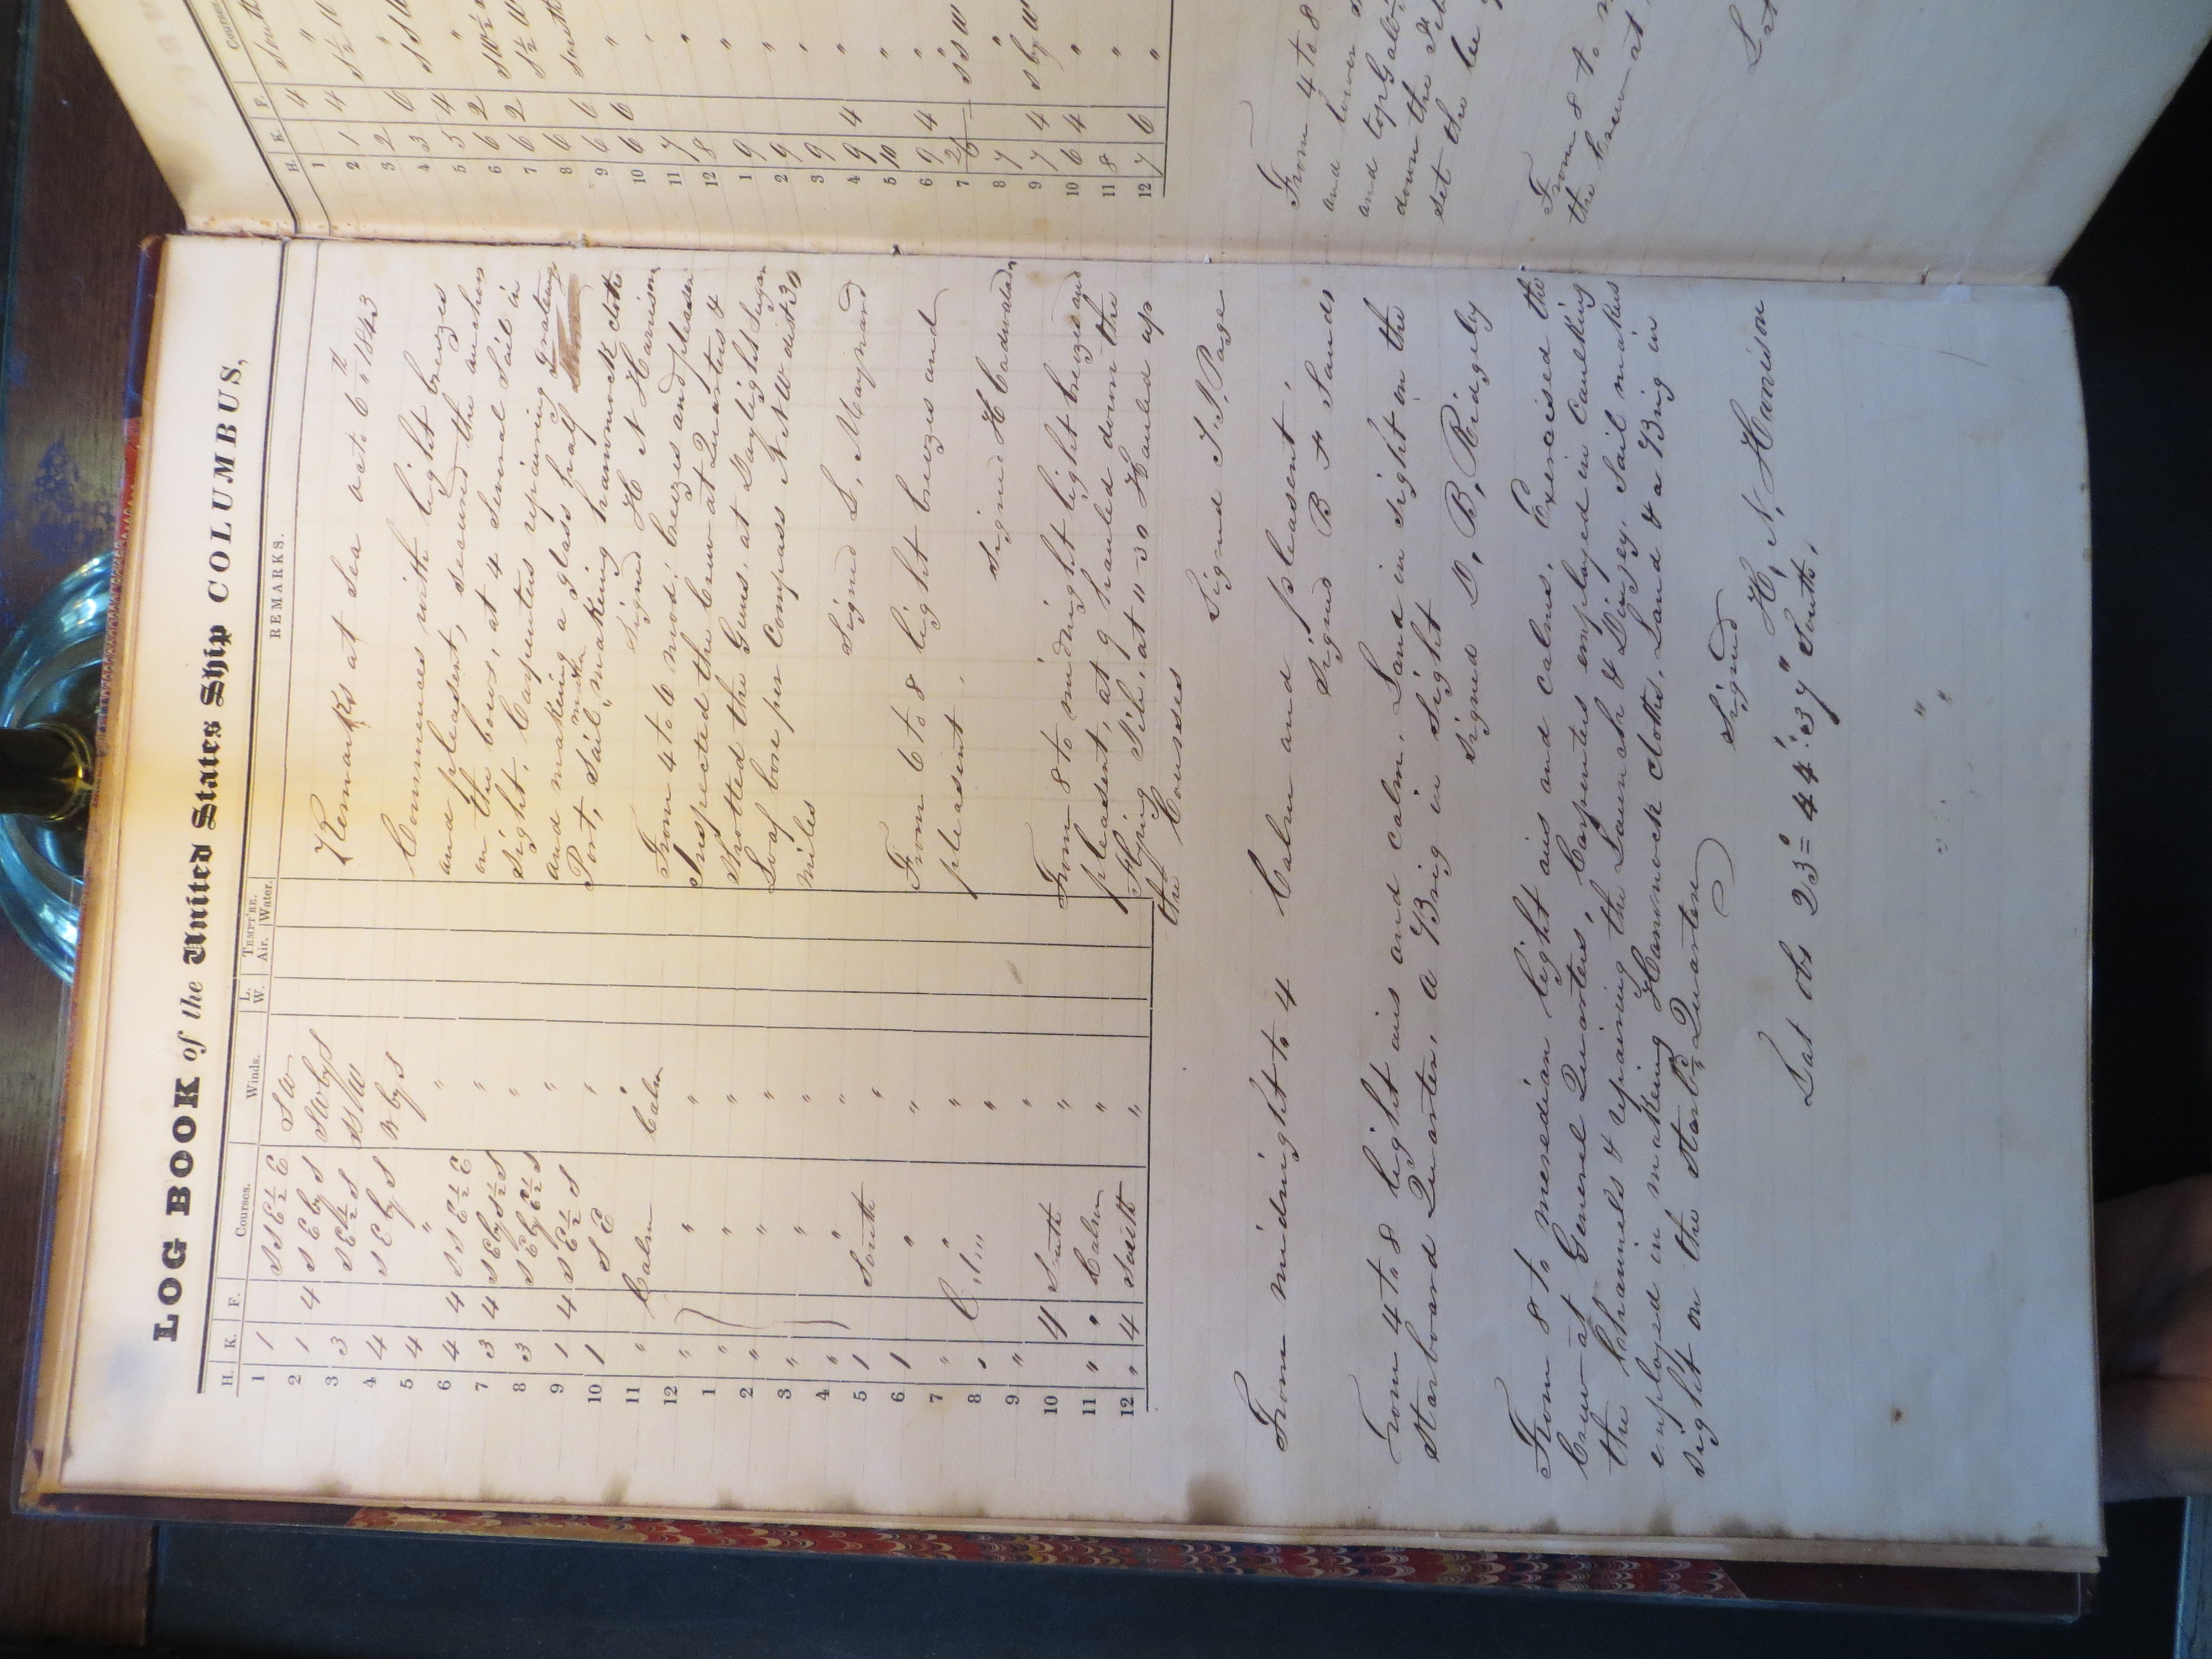 LOG BOOK of the United States Ship COLUMBUS,
H. K. F. Courses. Winds. L. W. TEMPT'RE. Air. Water. REMARKS.
1 1 S S E ½ E SW
2 1 4 S E by S SW by S
3 3 S E ½ S SSW
4 4 S E by S W by S
5 4 " "
6 4 4 S S E ½ E "
7 3 4 S E by S ½ S "
8 3 S E by E ½ S "
9 1 4 S E ½ S "
10 1 S E "
11 " Calm Calm
12 " " "
1 " " "
2 " " "
3 " " "
4 " " "
5 1 South "
6 1 " "
7 " " "
8 " "
9 " "
10 4 South "
11 " " Calm "
12 " 4 South "
Remarks at Sea Octo 6th 1843
Commences with light breezes
and pleasent, secured the anchors
on the bows, at 4 several Sail in
sight. Carpenters repairing grateing
and makeing a glass half
Port, Sail maker makeing hammock cloths
Signed H N Harrison
From 4 to 6 mod. breezes and pleasen
Inspected the Crew at Quarters &
Shotted the Guns. at Daylight Sugar
Loaf bore per Compass N N W dist 30
Miles
Signed L. Maynard
From 6 to 8 light breezes and
pleasent.
Signed H Cadwalader
From 8 to midnight light breezes and
pleasent, at 9 hauled down the
Flying Jib. at 11-30 Hauled up
the Courses
Signed T. J. Page
From midnight to 4 Calm and pleasent.
Signed B F Sands
From 4 to 8 light airs and calm. Land in sight on the
Starboard Quarter. a Brig in Sight
Signed D. B. Ridgely
From 8 to meredian light airs and calms. Exercised the
Crew at General Quarters. Carpenters employed in Caulking
the Channels & repairing the Launch & Dingey. Sail makers
employed in makeing Hammock cloths. Land & a Brig in
sight on the Starbd Quarter
Signed
H. N. Harrison
Lat obs 23° = 44' : 37" South.
H. K. F. Courses
1 4 South
2 1 4 S ½ W
3 2 6 S S W
4 3 4
5 5 2
6 6 2
7 6 S ½ W
8 6 6 South
9 6 6
10 6
11 7
12 8
1 9
2 9
3 9
4 9 4
5 10
6 9 4
7
8 7
9 7 4 S by W
10 6 4 "
11 8 "
12 7 6 "
From 4 to 8
and lower
and topGall
down the
set the
From 8 to
the Crew at
Lat